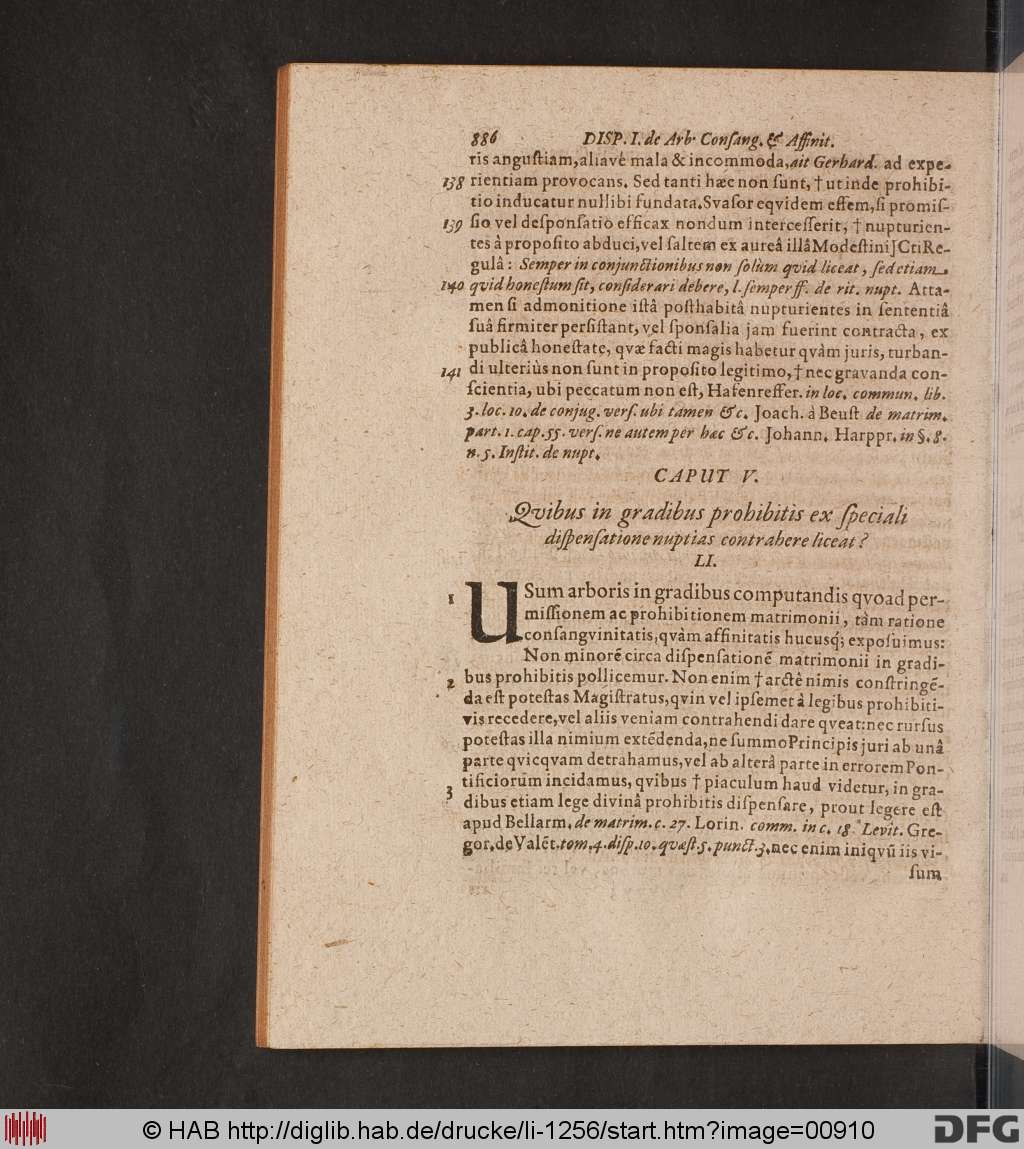 886 DISP. I. de Arb. Conſang. & Affinit.
ris anguſtiam, aliavè mala & incommoda, ait Gerhard. ad expe-
138 rientiam provocans. Sed tanti hæc non ſunt, † ut inde prohibi-
tio inducatur nullibi fundata. Svaſor eqvidem eſſem, ſi promiſ-
139 ſio vel deſponſatio efficax nondum interceſſerit, † nupturien-
tes à propoſito abduci, vel ſaltem ex aureâ illâ Modeſtini JCti Re-
gulâ: Semper in conjunctionibus non ſolùm qvid liceat, ſed etiam
140 qvid honeſtum ſit, conſiderari debere, l. ſemper ff. de rit. nupt. Atta-
men ſi admonitione iſtâ poſthabitâ nupturientes in ſententiâ
ſuâ firmiter perſiſtant, vel ſponſalia jam fuerint contracta, ex
publicâ honeſtate, qvæ facti magis habetur qvàm juris, turban-
141 di ulteriùs non ſunt in propoſito legitimo, † nec gravanda con-
ſcientia, ubi peccatum non eſt, Hafenreffer. in loc. commun. lib.
3. loc. 10. de conjug. verſ. ubi tamen &c. Joach. à Beuſt de matrim.
part. 1. cap. 55. verſ. ne autem per hæc &c. Johann. Harppr. in §. 8.
n. 5. Inſtit. de nupt.
CAPUT V.
Qvibus in gradibus prohibitis ex ſpeciali
diſpenſatione nuptias contrahere liceat?
LI.
1 USum arboris in gradibus computandis qvoad per-
miſſionem ac prohibitionem matrimonii, tàm ratione
conſangvinitatis, qvàm affinitatis hucusq́; expoſuimus:
Non minorē circa diſpenſationē matrimonii in gradi-
bus prohibitis pollicemur. Non enim † arctè nimis conſtringē-
2 da eſt poteſtas Magiſtratus, qvin vel ipſemet à legibus prohibiti-
vis recedere, vel aliis veniam contrahendi dare qveat: nec rurſus
poteſtas illa nimium extēdenda, ne ſummo Principis juri ab unâ
parte qvicqvam detrahamus, vel ab alterâ parte in errorem Pon-
tificiorum incidamus, qvibus † piaculum haud videtur, in gra-
3 dibus etiam lege divinâ prohibitis diſpenſare, prout legere eſt
apud Bellarm. de matrim. c. 27. Lorin. comm. in c. 18. Levit. Gre-
gor. de Valēt. tom. 4. diſp. 10. qvæſt. 5. punct. 3. nec enim iniqvū iis vi-
ſum
© HAB http://diglib.hab.de/drucke/li-1256/start.htm?image=00910
DFG